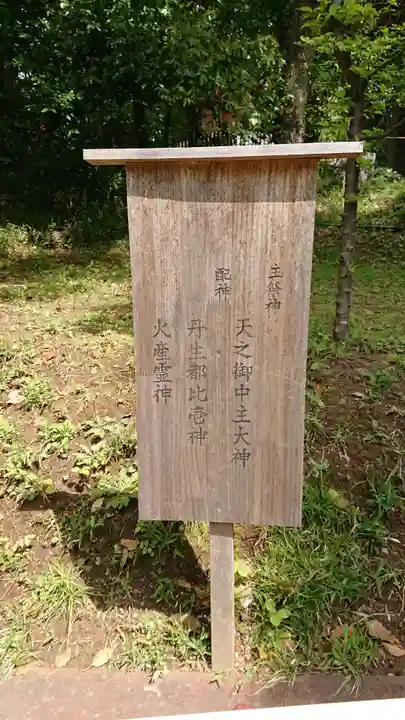 主祭神
天之御中主大神
配神
丹生都比壱神
火産霊神